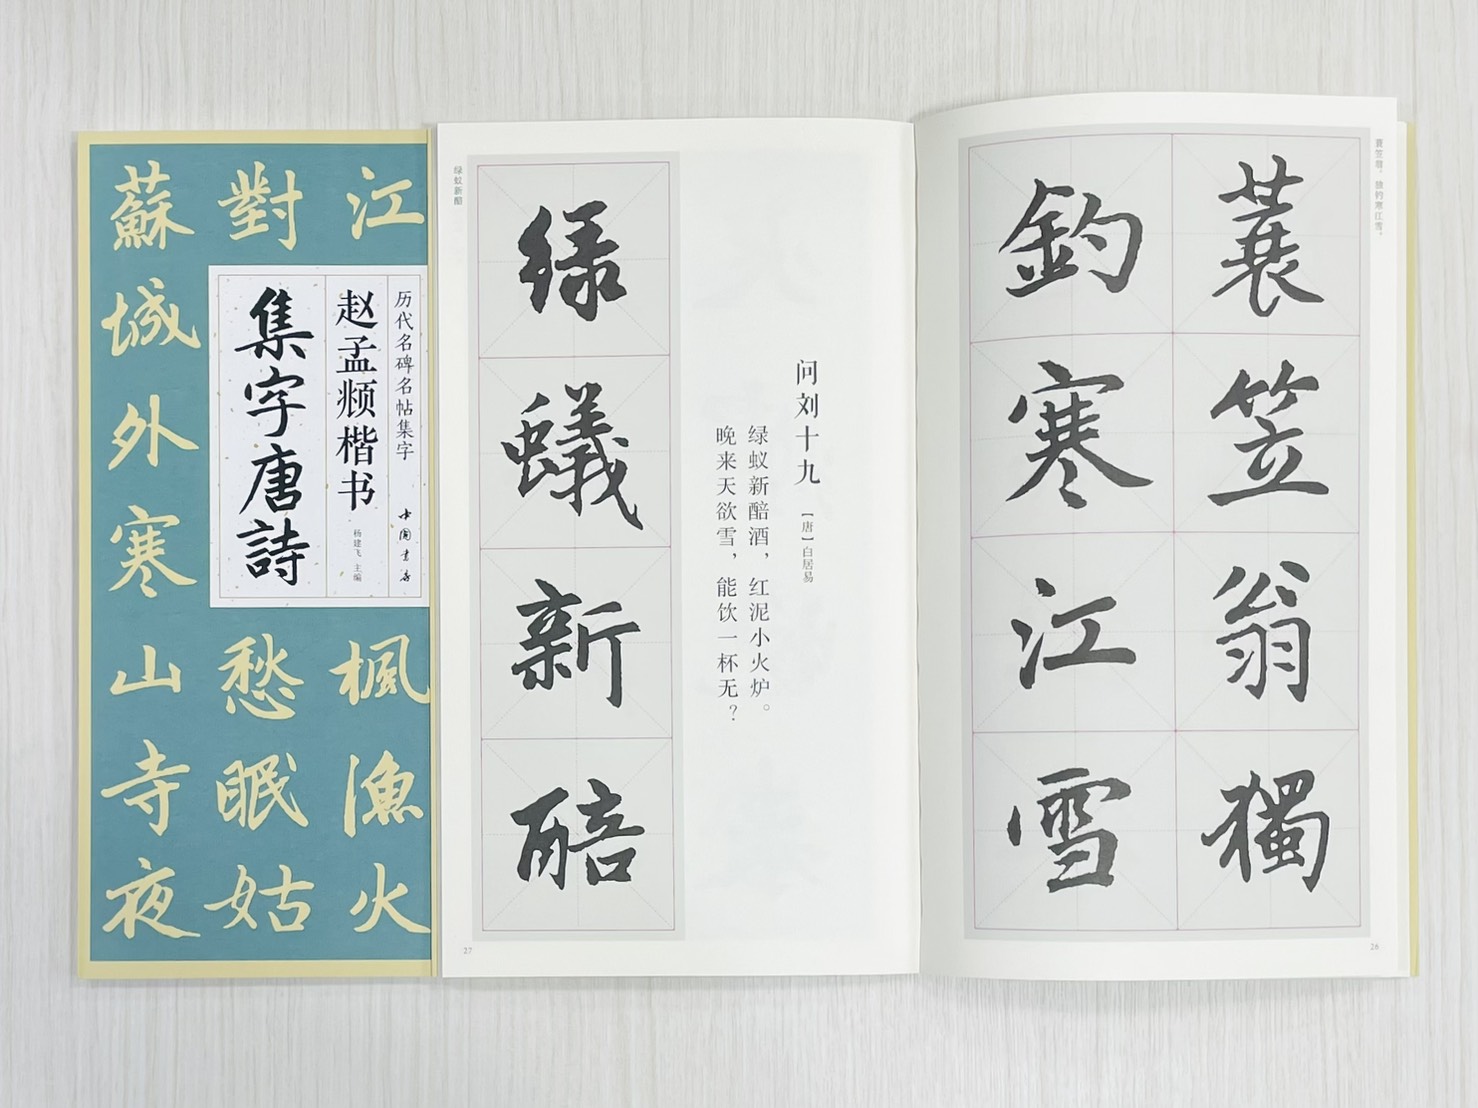 江
楓
漁
火
對
愁
眠
姑
蘇
城
外
寒
山
寺
夜
历代名碑名帖集字
中国书店
赵孟頫楷书
杨建飞 主编
集字唐詩
蓑笠翁，独钓寒江雪。
蓑笠翁獨
釣寒江雪
26
问刘十九
【唐】白居易
绿蚁新醅酒，红泥小火炉。
晚来天欲雪，能饮一杯无？
绿蟻新醅
绿蚁新醅
27